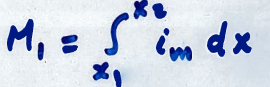 M₁ = ∫ₓ₁ˣ² iₘ dx